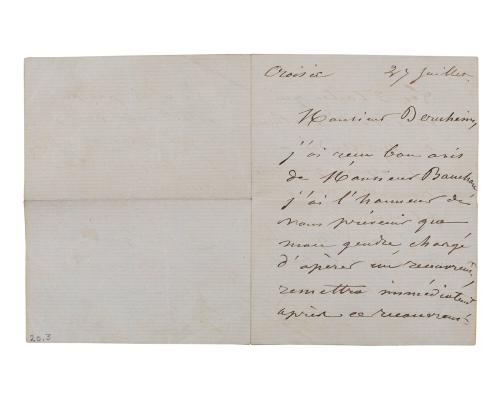 Croisic 27 Juillet.
Monsieur
j'ai reçu bon avis
de Monsieur
j'ai l'honneur de
vous prévenir que
mon gendre chargé
d'opérer un recouvremt
remettra immédiatemt
après ce recouvremt
20.3